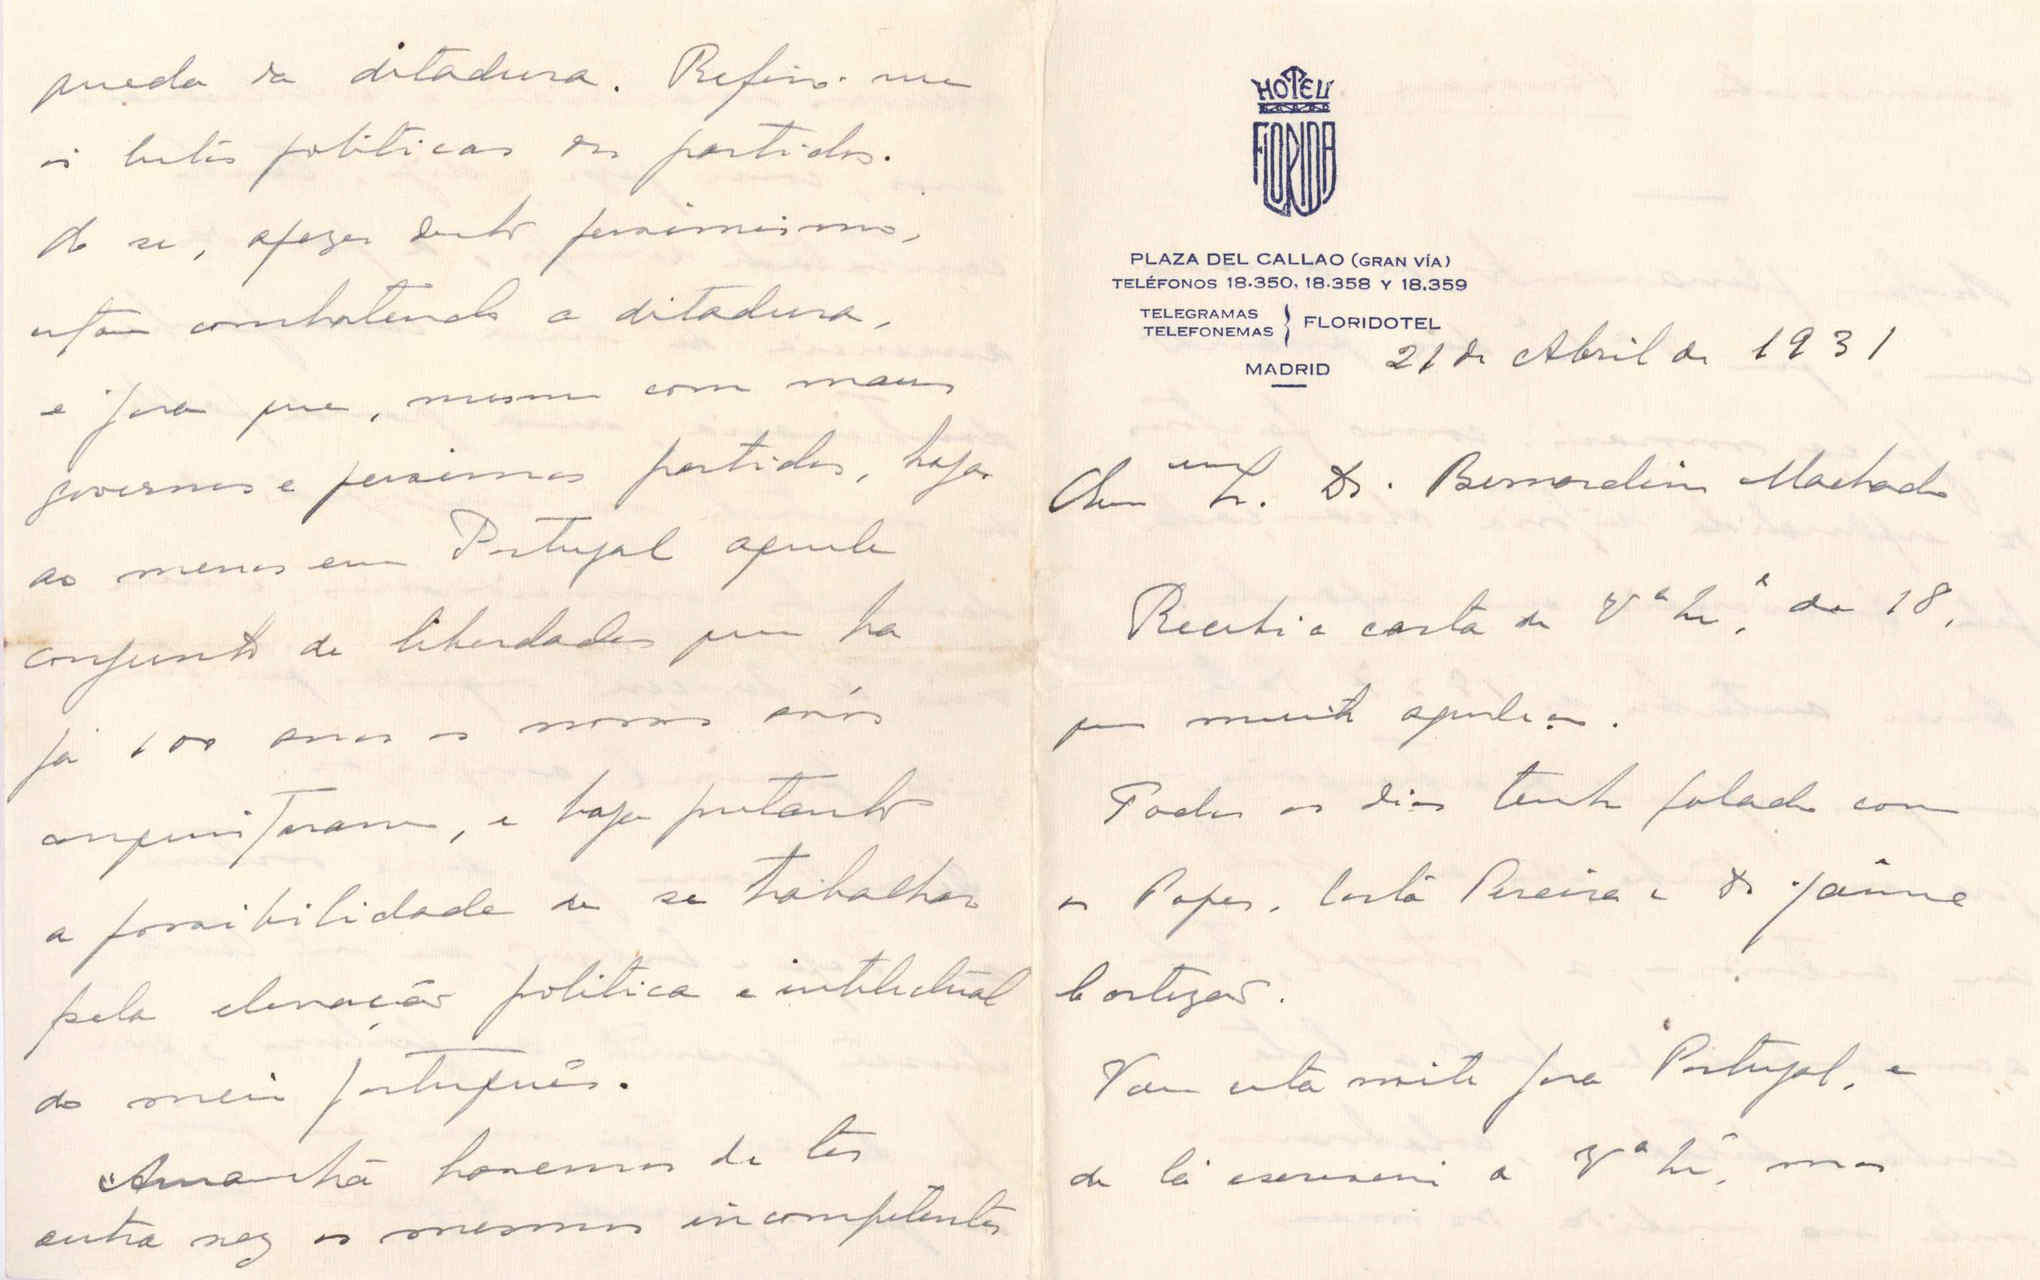 queda da ditadura. Refiro-me
ás lutas politicas dos partidos.
do se, apezar deste pessimismo,
estou combatendo a ditadura,
é para que, mesmo com maus
governos e pessimos partidos, haja
ao menos em Portugal aquele
conjunto de liberdades que ha
já 100 anos os nossos avós
conquistaram, e haja portanto
a possibilidade de se trabalhar
pela elevação politica e intelectual
do meio português.
Amanhã havemos de ter
outra vez os mesmos incompetentes
HOTEL
FLORIDA
PLAZA DEL CALLAO (GRAN VÍA)
TELÉFONOS 18.350, 18.358 Y 18.359
TELEGRAMAS
TELEFONEMAS } FLORIDOTEL
MADRID
21 de Abril de 1931
Sr. Dr. Bernardino Machado
Recebi a carta de V.ª Ex.ª, de 18,
que muito agradeço.
Todos os dias tenho falado com
os Popes, Costa Pereira e Dr Jaime
Cortezão.
Vou esta noite para Portugal, e
de lá escreverei a V.ª Ex.ª, mas